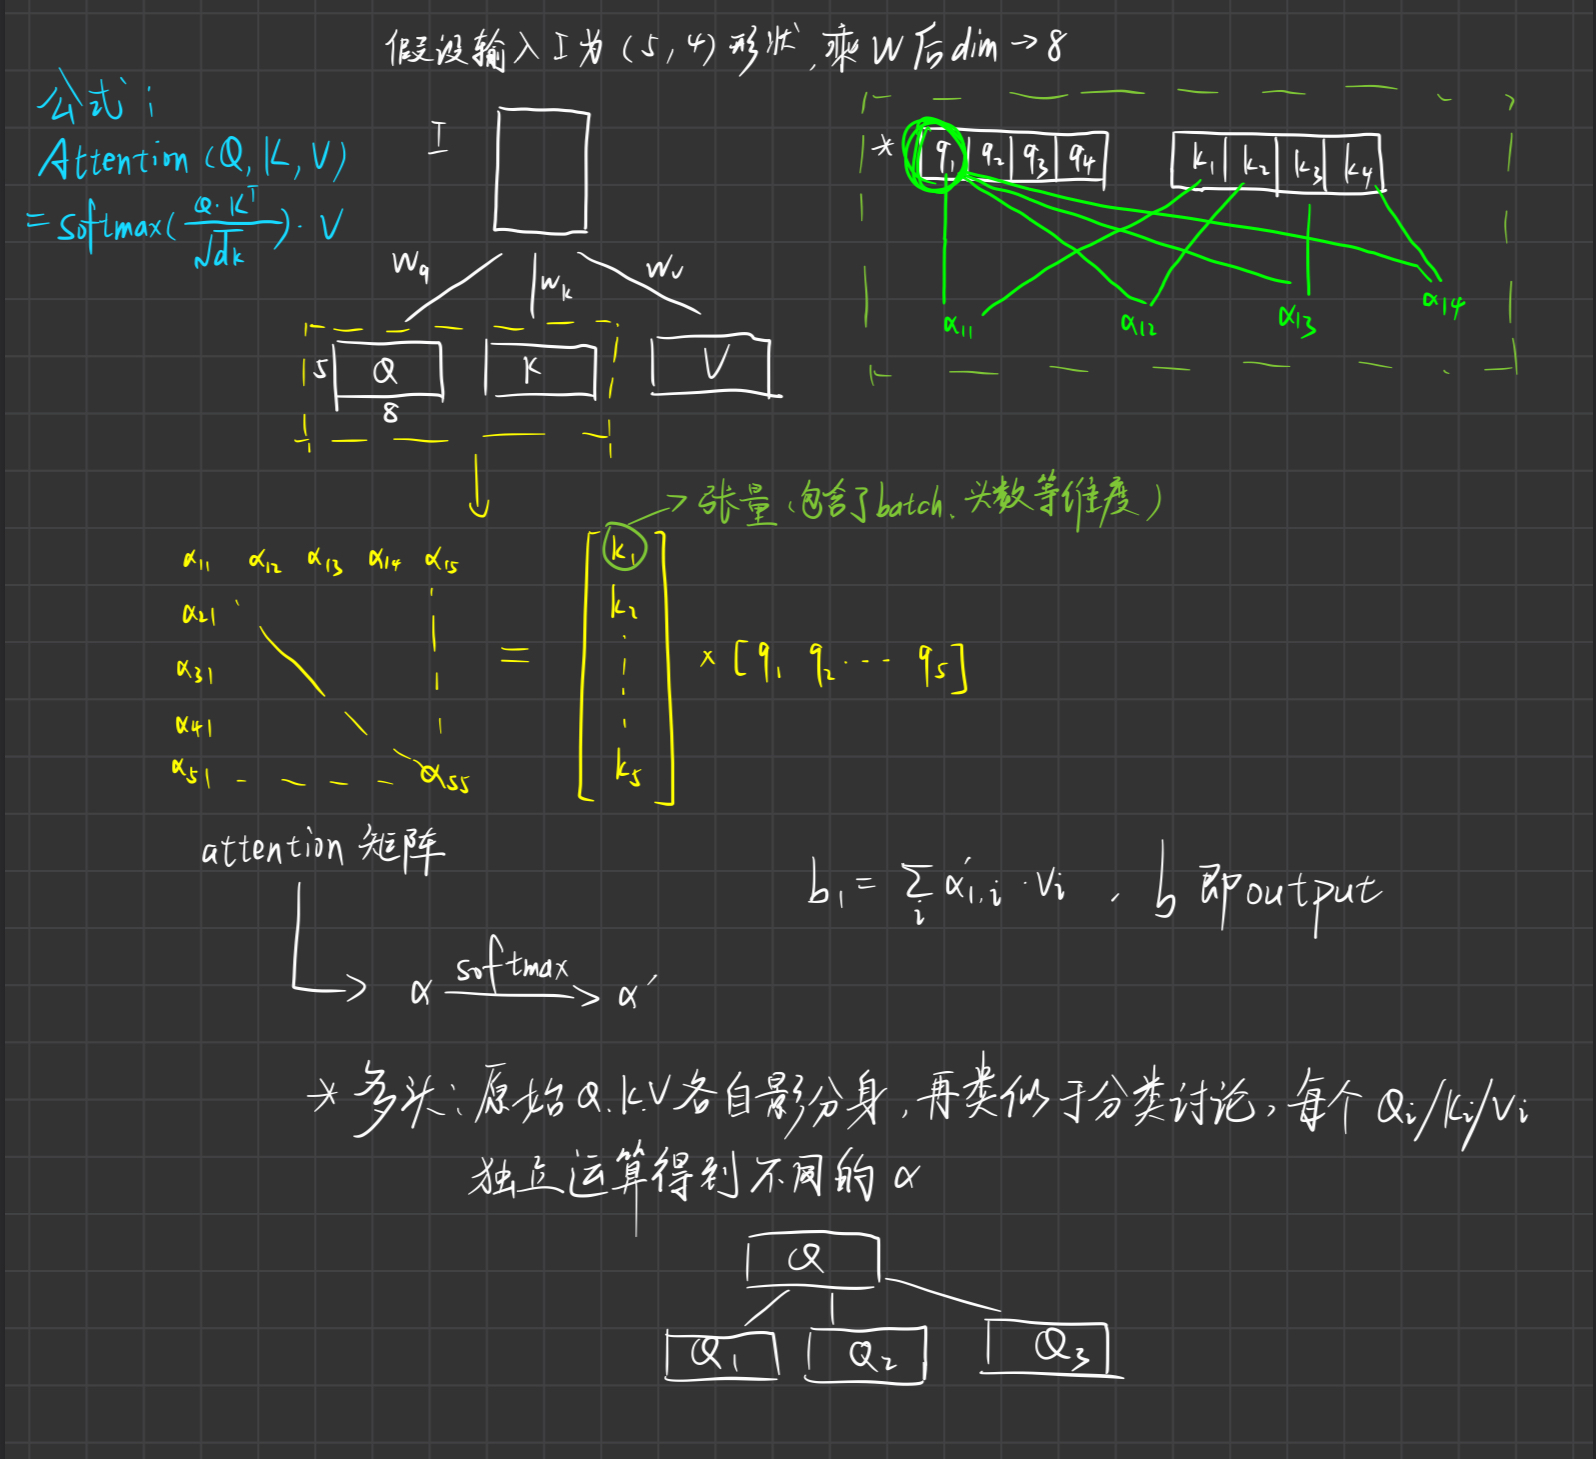 假设输入 I 为 (5, 4) 形状, 乘 W 后 dim → 8
公式:
Attention (Q, K, V)
= softmax( Q·K^T / √dk ) · V
I
Wq Wk Wv
5 Q K V
8
* q1 q2 q3 q4 k1 k2 k3 k4
α11 α12 α13 α14
→ 张量 (包含了 batch、头数等维度)
α11 α12 α13 α14 α15
α21
α31
α41
α51 - - - - α55
=
k1
k2
k5
× [q1 q2 ··· q5]
attention 矩阵
α softmax → α′
b1 = Σi α′1,i · Vi , b 即 output
* 多头: 原始 Q.K.V 各自影分身, 再类似于分类讨论, 每个 Qi/Ki/Vi
独立运算得到不同的 α
Q
Q1 Q2 Q3